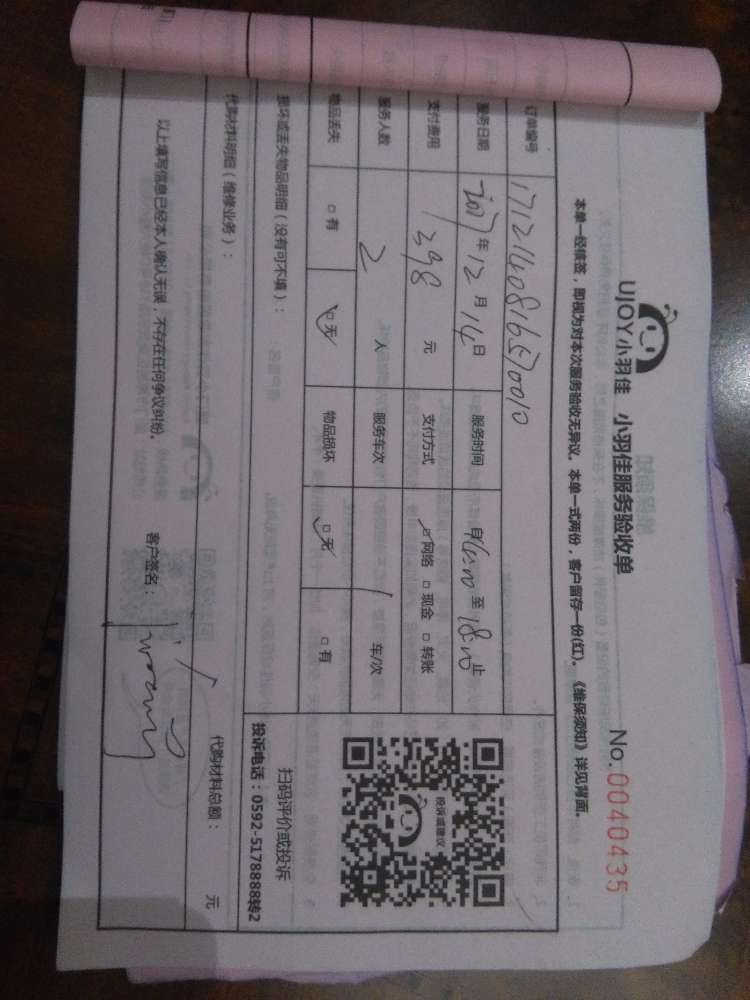 UJOY小羽佳 小羽佳服务验收单
No.0040435
本单一经信签，即视为对本次服务验收无异议。本单一式两份，客户留存一份(红)。《维保须知》详见背面。
订单编号
服务日期 2017年12月14日 服务时间 自16:00至18:00止
支付费用 1398 元 支付方式 ☑网络 □现金 □转账
服务人数 2 人 服务车次 1 车/次
物品丢失 □有 ☑无 物品损坏 ☑无 □有
损坏或丢失物品明细（没有可不填）：
投诉或建议
扫码评价或投诉
投诉电话：0592-5178888转2
代购材料明细（维修业务）： 代购材料总额： 元
以上填写信息已经本人确认无误，不存在任何争议纠纷。 客户签名：